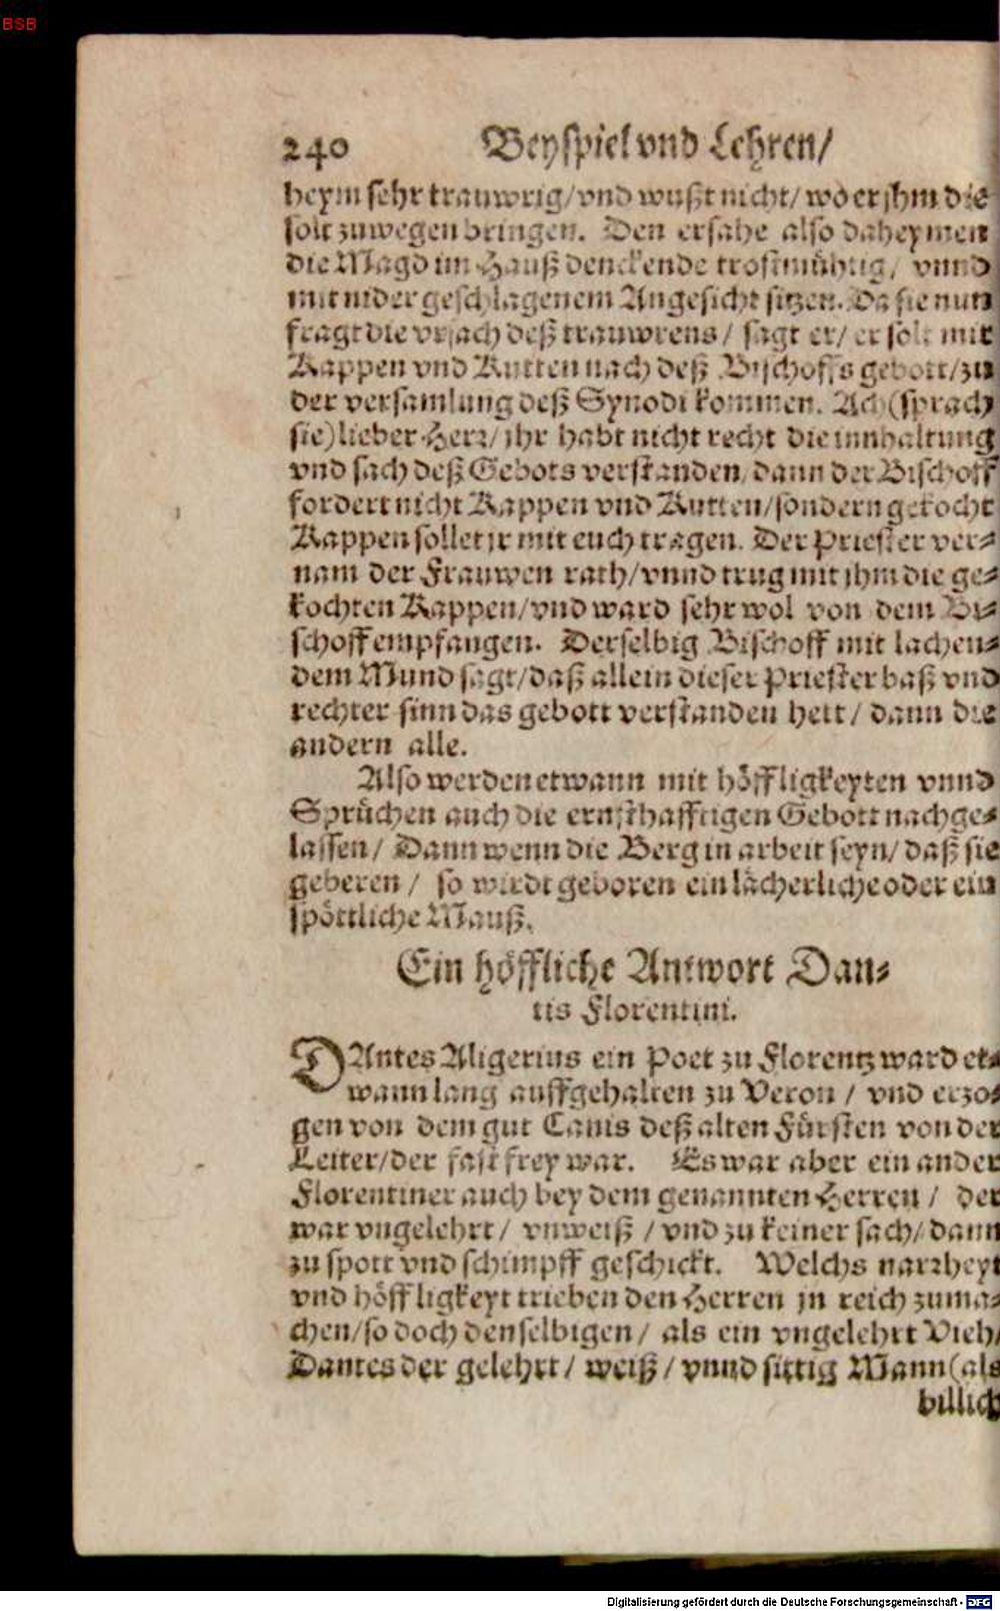 BSB
240 Beyspiel vnd Lehren/
heym sehr trauwrig/vnd wußt nicht/wo er jhm die
solt zuwegen bringen. Den ersahe also daheymen
die Magd im Hauß denckende trostmühtig/ vnnd
mit nider geschlagenem Angesicht sitzen. Da sie nun
fragt die vrsach deß trauwrens/ sagt er/ er solt mit
Kappen vnd Kutten nach deß Bischoffs gebott/zu
der versamlung deß Synodi kommen. Ach (sprach
sie) lieber Herr/ jhr habt nicht recht die innhaltung
vnd sach deß Gebots verstanden/dann der Bischoff
fordert nicht Kappen vnd Kutten/sondern gekocht
Kappen sollet jr mit euch tragen. Der Priester ver⸗
nam der Frauwen rath/vnnd trug mit jhm die ge⸗
kochten Kappen/vnd ward sehr wol von dem Bi⸗
schoff empfangen. Derselbig Bischoff mit lachen⸗
dem Mund sagt/daß allein dieser Priester baß vnd
rechter sinn das gebott verstanden hett/ dann die
andern alle.
Also werden etwann mit höffligkeyten vnnd
Sprüchen auch die ernsthafftigen Gebott nachge⸗
lassen/ Dann wenn die Berg in arbeit seyn/daß sie
geberen/ so wirdt geboren ein lächerliche oder ein
spöttliche Mauß.
Ein höffliche Antwort Dan⸗
tis Florentini.
DAntes Aligerius ein Poet zu Florentz ward et⸗
wann lang auffgehalten zu Veron/ vnd erzo⸗
gen von dem gut Canis deß alten Fürsten von der
Leiter/der fast frey war. Es war aber ein ander
Florentiner auch bey dem genannten Herren/ der
war vngelehrt/ vnweiß/vnd zu keiner sach/dann
zu spott vnd schimpff geschickt. Welchs narrheyt
vnd höffligkeyt trieben den Herren jn reich zuma⸗
chen/so doch denselbigen/ als ein vngelehrt Vieh/
Dantes der gelehrt/ weiß/vnnd sittig Mann (als
billich
Digitalisierung gefördert durch die Deutsche Forschungsgemeinschaft - DFG